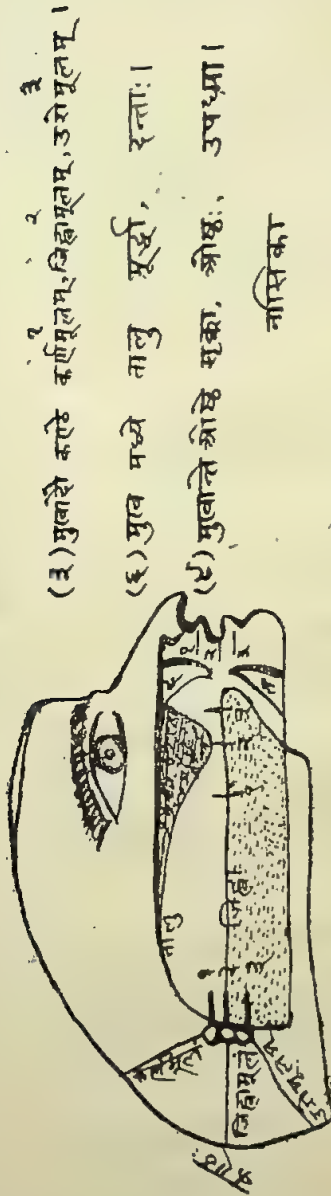 (३) मुखादौ कण्ठे कर्णमूलम्, जिह्वामूलम्, उरोमूलम् ।
१ २ ३
(६) मुख मध्ये तालु मूर्द्धा, दन्ताः ।
(९) मुखान्ते ओष्ठे सृक्का, ओष्ठः, उपध्मा ।
नासिका
तालु
जिह्वा
१ २ ३
कर्णमूलं
जिह्वामूलं
उरोमूलम्
कण्ठः